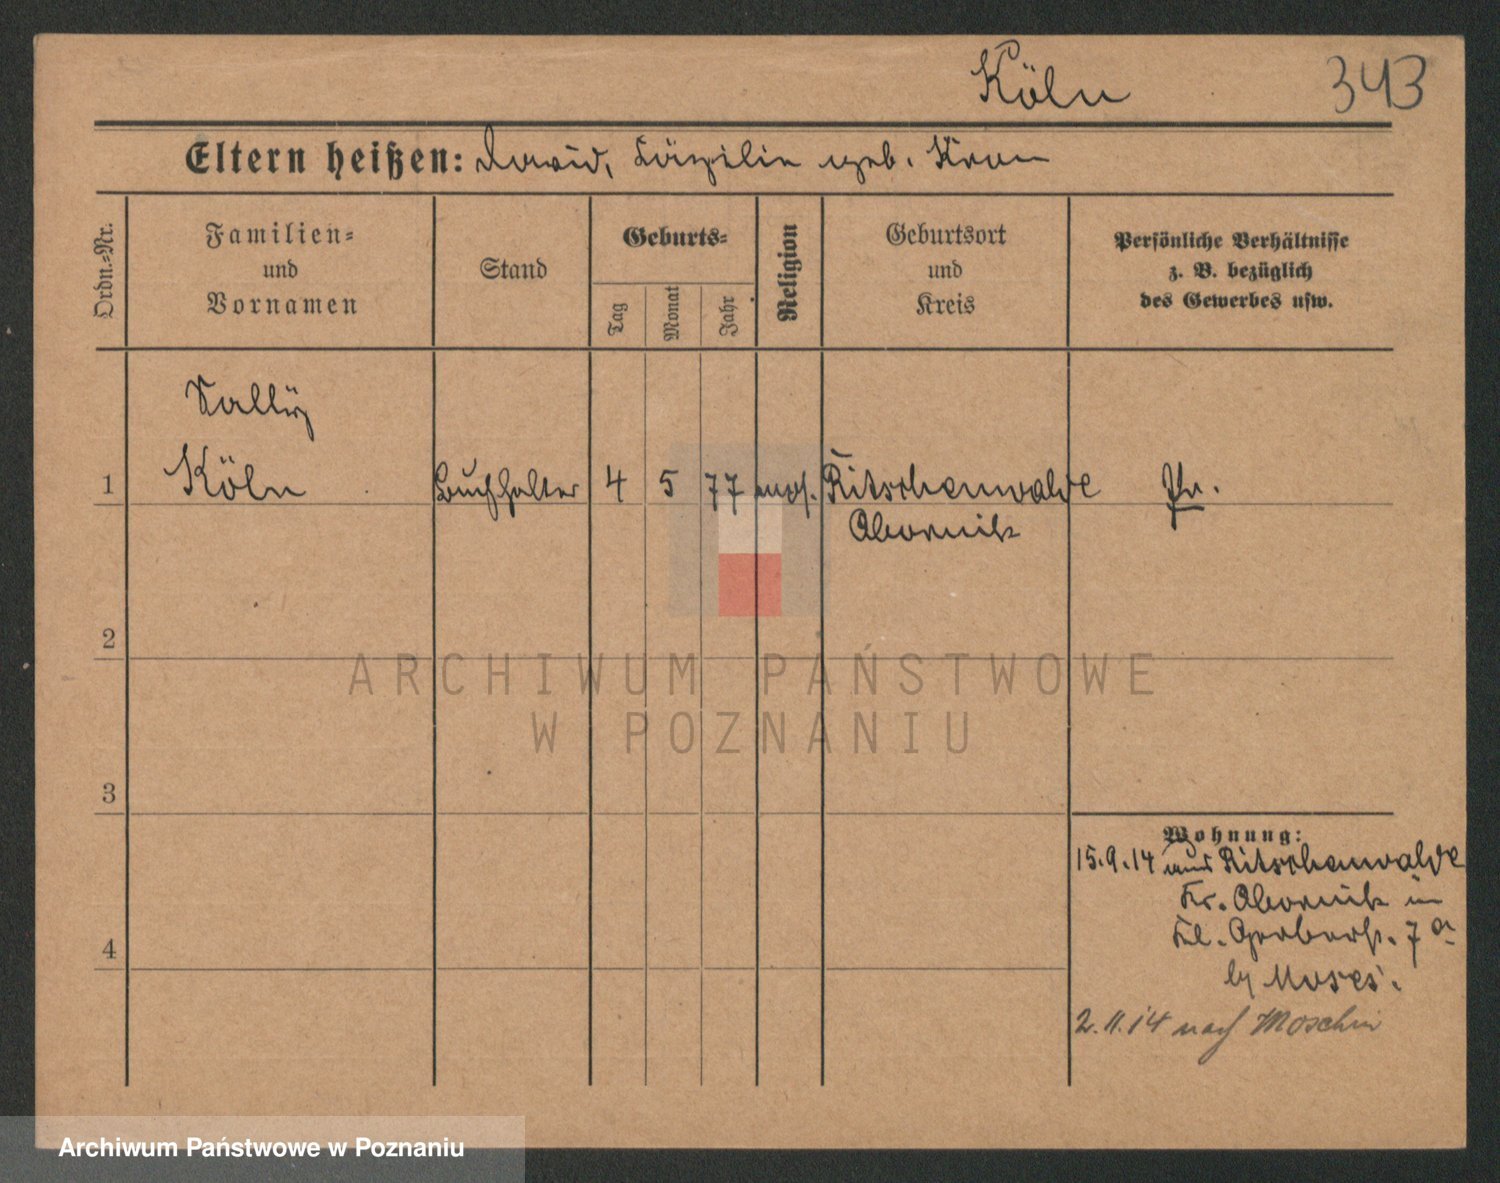 Köln 343
Eltern heißen: David, Cäzilie geb. Kron
Ordn.-Nr.
Familien-
und
Vornamen
Stand
Geburts-
Tag
Monat
Jahr
Religion
Geburtsort
und
Kreis
Persönliche Verhältnisse
z. B. bezüglich
des Gewerbes usw.
Sally
1 Köln Buchhalter 4 5 77 mos. Ritschenwalde Pr.
Obornik
2
3
4
Wohnung:
15.9.14 aus Ritschenwalde
Kr. Obornik in
Kl. Gerberstr. 7a
b/ Moses.
2.11.14 nach Moschin
ARCHIWUM PAŃSTWOWE
W POZNANIU
Archiwum Państwowe w Poznaniu